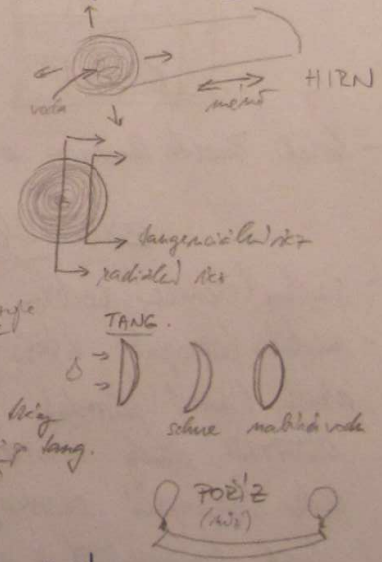 HIRN
voda
méně
tangenciální řez
radiální řez
TANG.
schne
nabírá vodu
tang.
POŘÍZ
(nůž)